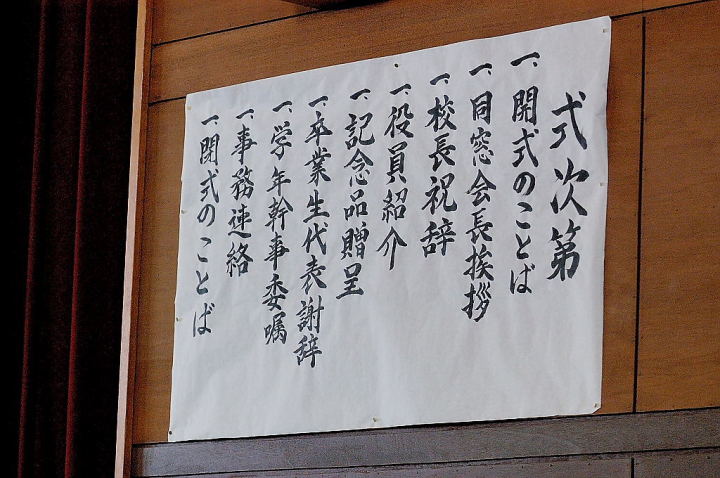 式次第
一、開式のことば
一、同窓会長挨拶
一、校長祝辞
一、役員紹介
一、記念品贈呈
一、卒業生代表謝辞
一、学年幹事委嘱
一、事務連絡
一、閉式のことば